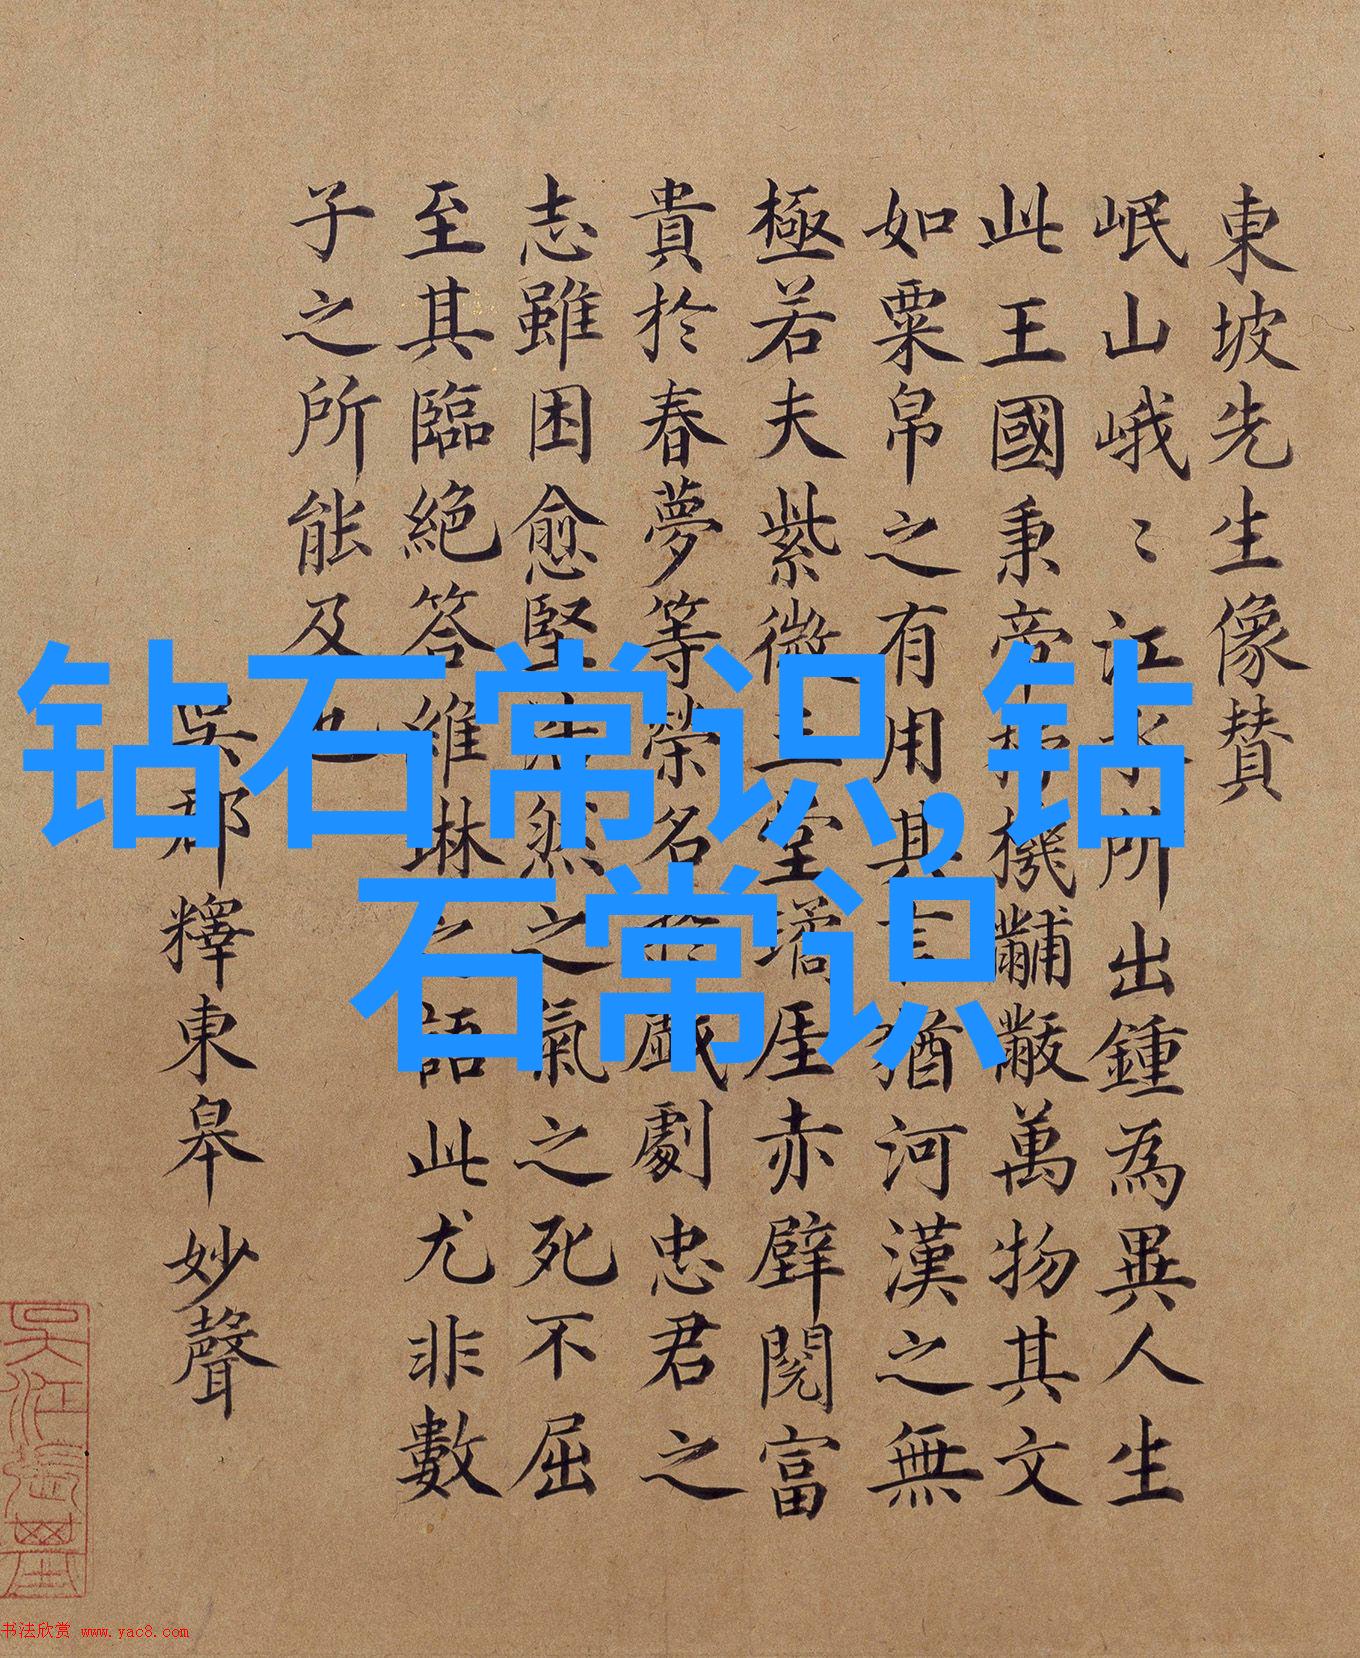 東坡先生像贊
岷山峨〻江水所出鍾為異人生
此王國秉帝機黼黻萬物其文
如粟帛之有用其言猶河漢之無
極若夫紫微堂厓赤壁閱富
貴於春夢等榮名於戲劇忠君之
志雖困愈堅然之氣之死不屈
至其臨絕答維琳之語此尤非數
子之所能及也
吳郡釋東皋妙聲
钻石常识,钻
石常识
书法欣赏 www.yac8.com